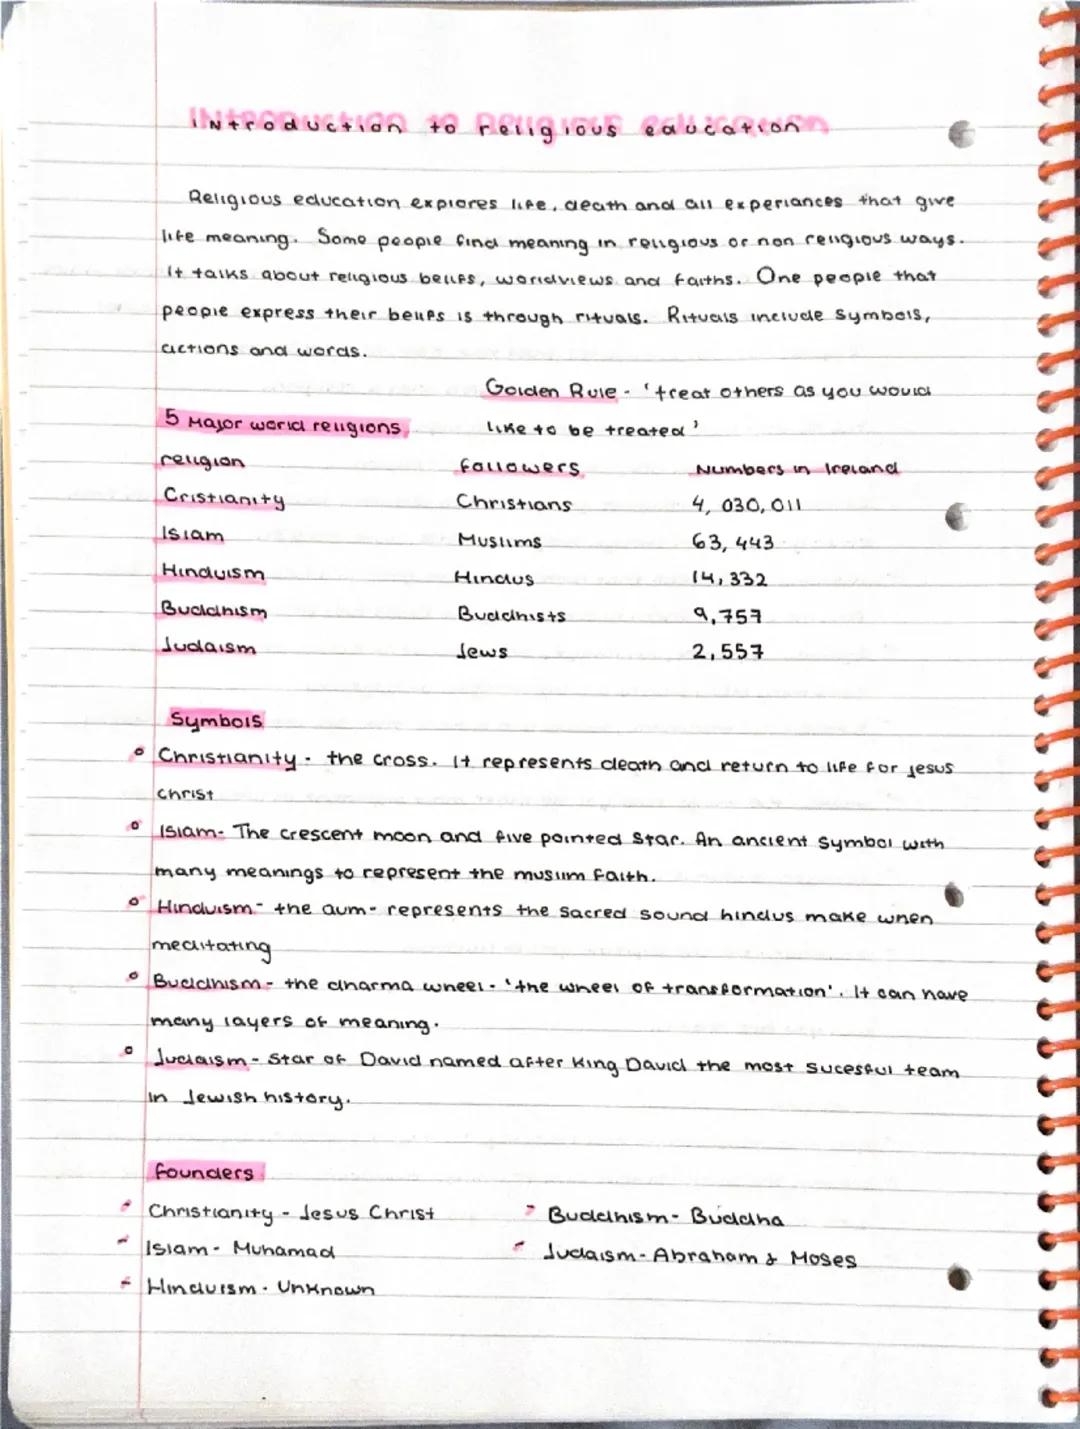 Introduction to religious education
Religious education explores life, death and all experiances that give
life meaning. Some people find meaning in religious or non religious ways.
It talks about religious belifs, worldviews and faiths. One people that
people express their belifs is through rituals. Rituals include symbols,
actions and words.
Golden Rule - 'treat others as you would
like to be treated'
5 Major world religions
religion followers Numbers in Ireland
Cristianity Christians 4, 030, 011
Islam Muslims 63, 443
Hinduism Hindus 14, 332
Buddhism Buddhists 9, 757
Judaism Jews 2, 557
Symbols
Christianity - the cross. It represents death and return to life for jesus
christ
Islam - The crescent moon and five pointed star. An ancient symbol with
many meanings to represent the muslim faith.
Hinduism - the aum - represents the sacred sound hindus make when
meditating
Buddhism - the dharma wheel - 'the wheel of transformation'. It can have
many layers of meaning.
Judaism - Star of David named after King David the most sucesful team
in Jewish history.
founders
Christianity - Jesus Christ
Islam - Muhamad
Hinduism - Unknown
Buddhism - Buddha
Judaism - Abraham & Moses